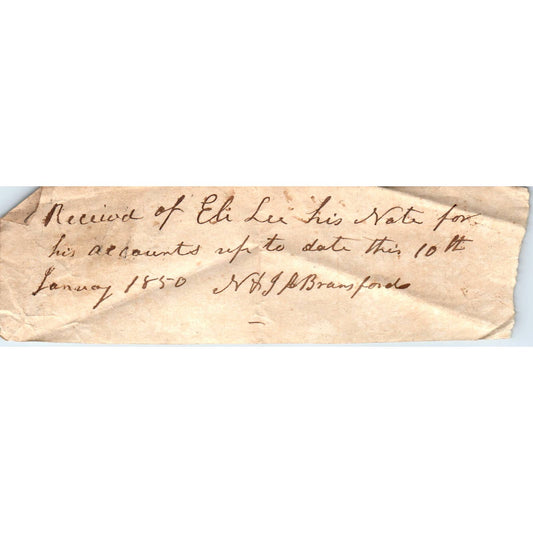 Received of Eli Lee his Note for
his accounts up to date this 10th
January 1850 N & J A Bransford